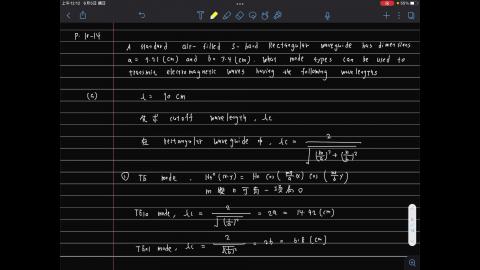 上午12:12 9月5日 週日
55%
P. 10-14
A standard air-filled S-band Rectangular waveguide has dimensions
a = 7.21 (cm) and b = 3.4 (cm). What mode types can be used to
transmit electromagnetic waves having the following wavelengths
(a) λ = 10 cm
cutoff wavelength, λc
在 rectangular waveguide 中, λc = 2 / √((m/a)² + (n/b)²)
① TE mode, Hz⁰(x,y) = H₀ cos(mπ/a x) cos(nπ/b y)
m 與 n 可有一項為 0
TE10 mode, λc = 2 / √((1/a)²) = 2a = 14.42 (cm)
TE01 mode, λc = 2 / √((1/b)²) = 2b = 6.8 (cm)